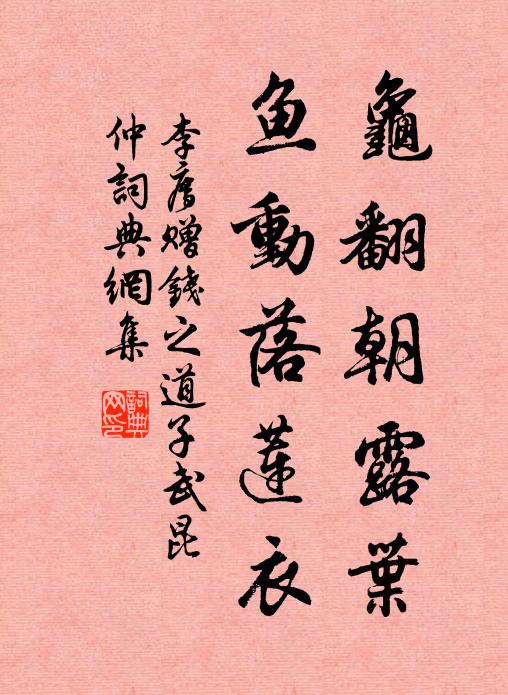 龜翻朝露葉
鱼動落蓮衣
李廌贈錢之道子武昆
仲詞典網集
詞典
网印